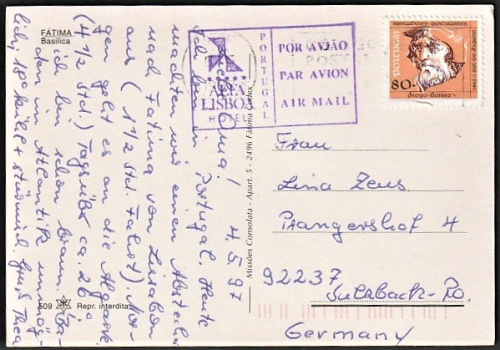 FÁTIMA
Basilica
ALFA
LISBOA
HOTEL
PORTUGAL
POR AVIÃO
PAR AVION
AIR MAIL
Portugal
80.-
Diogo Gomes
4.5.97
bin in Portugal. Heute
machten wir einen Abstecher
nach Fatima von Lissabon
aus (1 1/2 Std. Fahrt). Mor-
gen geht es an die Algarve
(4 1/2 Std.) Tagsüber ca. 26°
ich bin schon braun. Ba-
den im Atlantik unmög-
lich, 18° kühl + stürmisch. Gruß Thea
Missões Consolata - Apart. 5 - 2496 Fátima Codex
509
Repr. interdita
Frau
Lina Zeus
Prangershof 4
92237
Sulzbach-Ro.
Germany